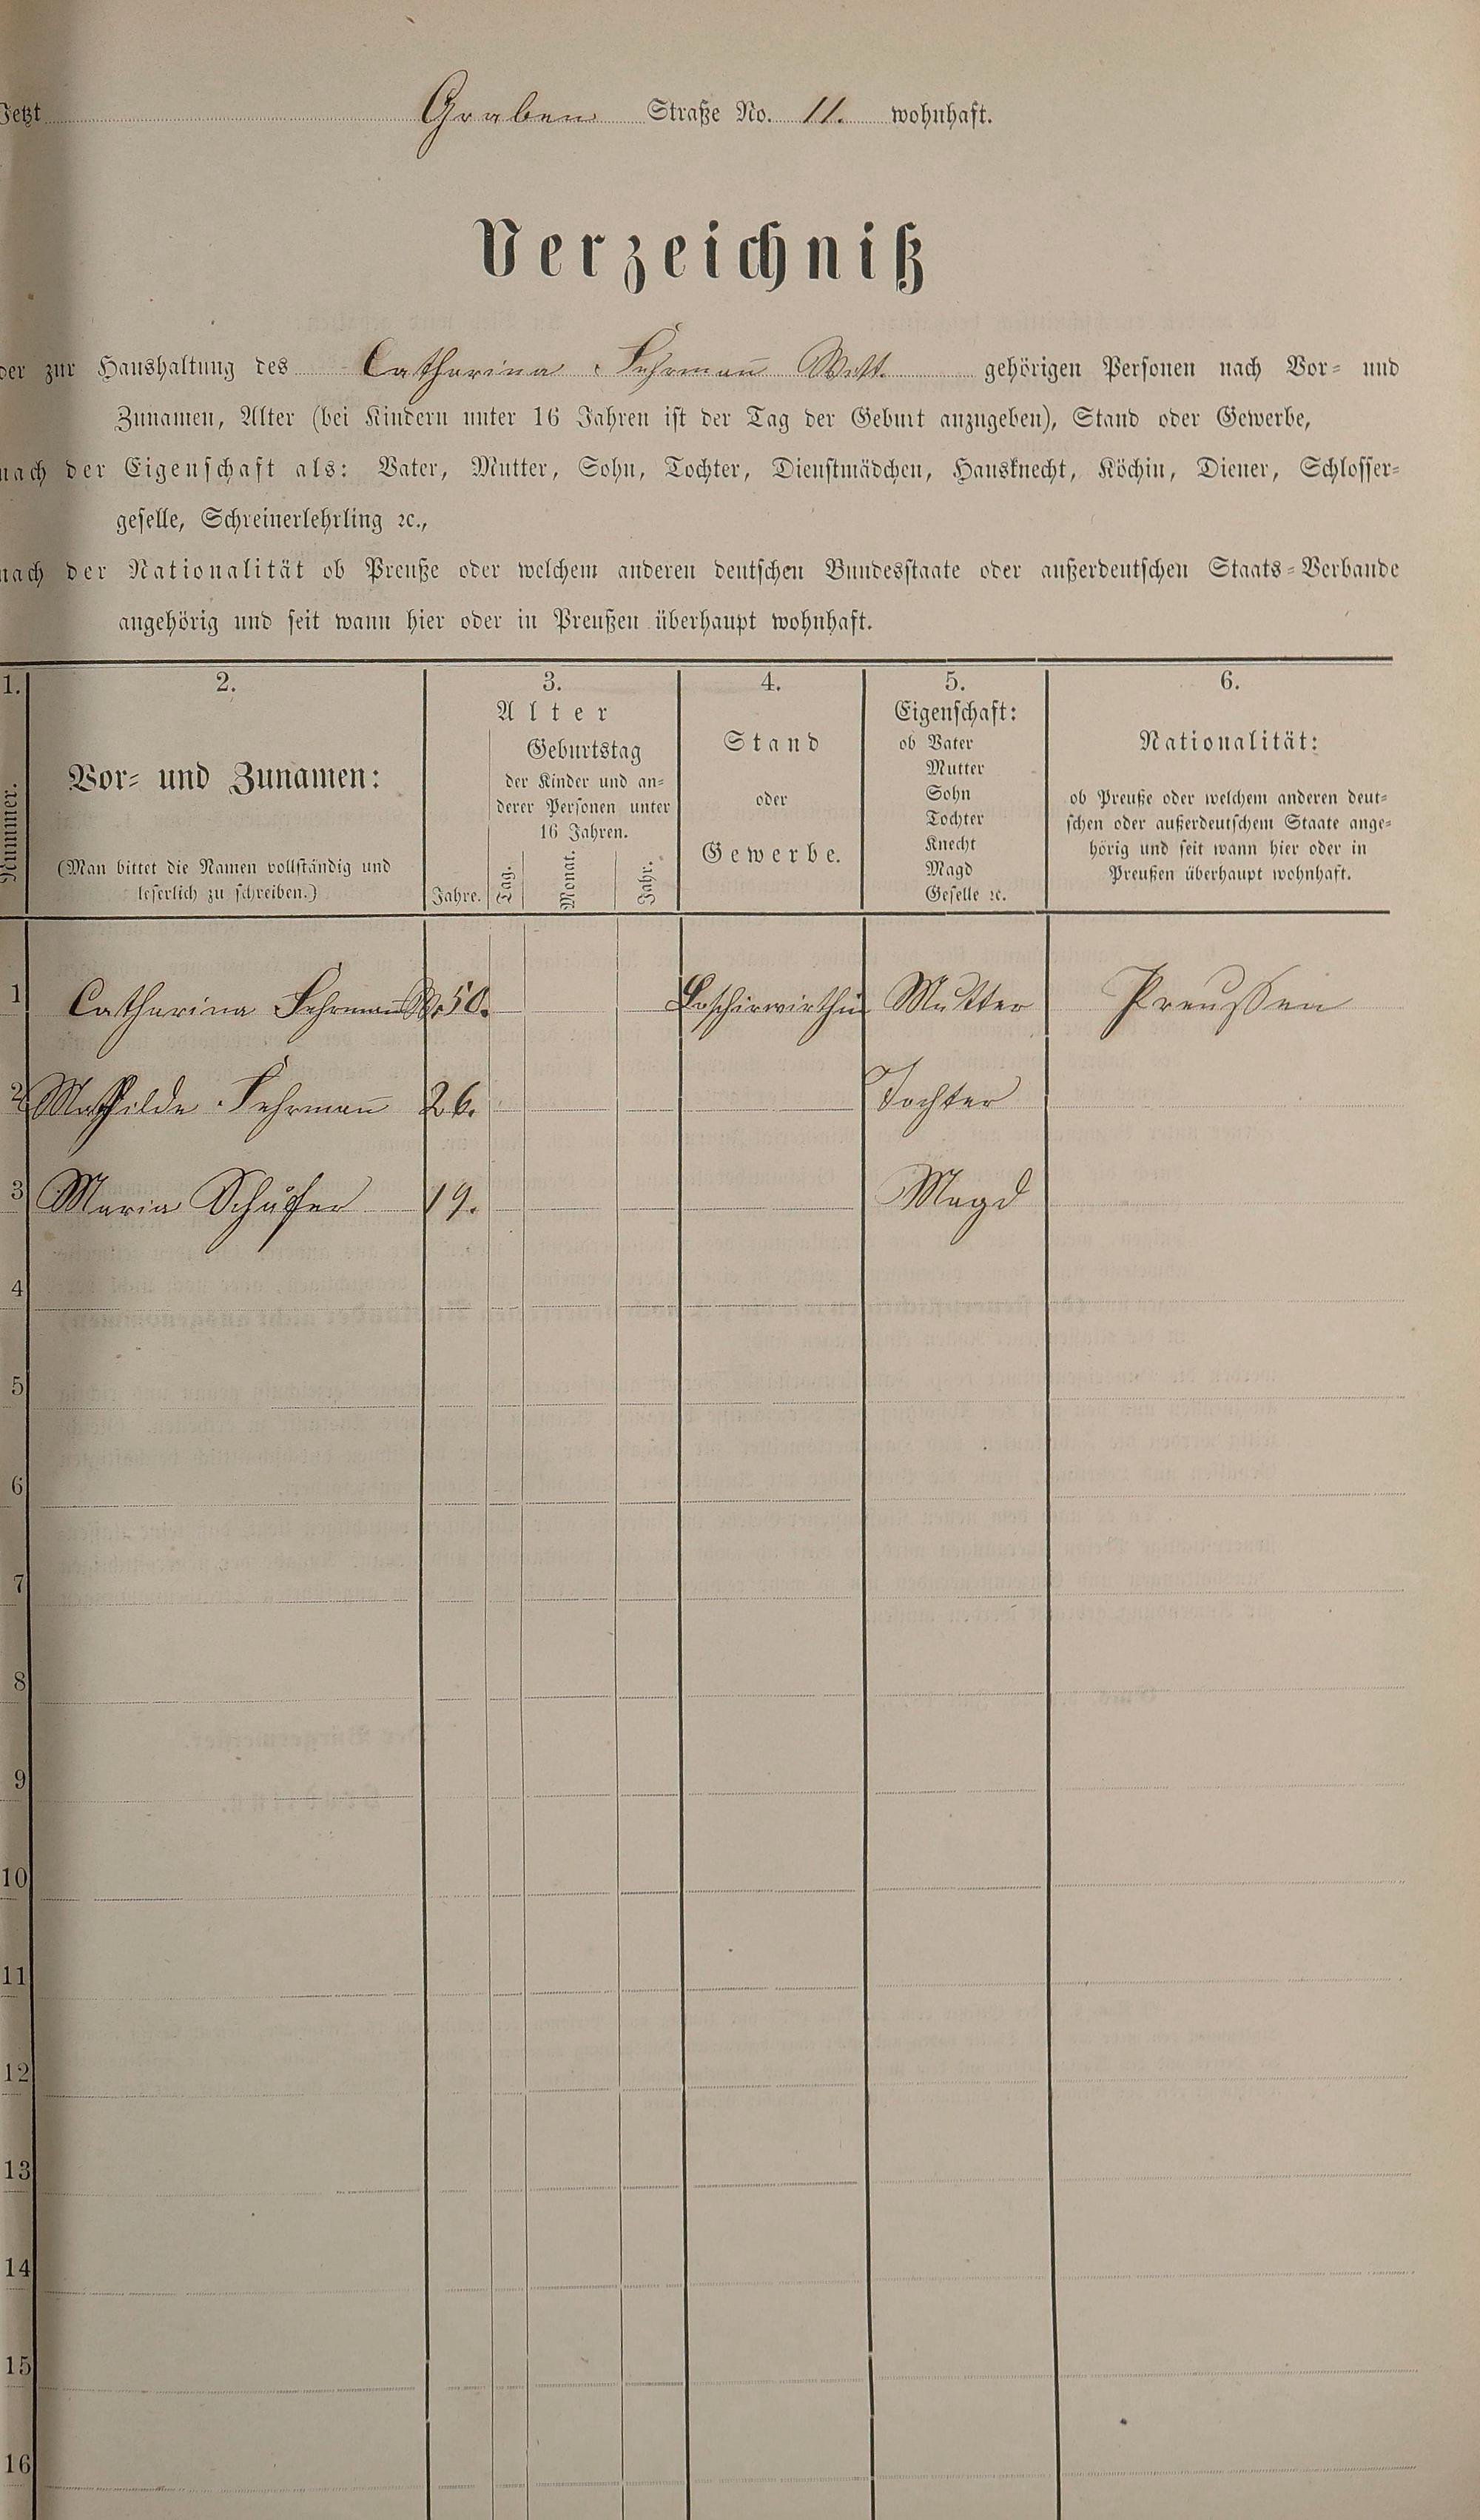 Jetzt Graben Straße No. 11. wohnhaft.
Verzeichniß
der zur Haushaltung des Catharina Fehrman̄ Witt. gehörigen Personen nach Vor- und
Zunamen, Alter (bei Kindern unter 16 Jahren ist der Tag der Geburt anzugeben), Stand oder Gewerbe,
nach der Eigenschaft als: Vater, Mutter, Sohn, Tochter, Dienstmädchen, Hausknecht, Köchin, Diener, Schlosser-
geselle, Schreinerlehrling ꝛc.,
nach der Nationalität ob Preuße oder welchem anderen deutschen Bundesstaate oder außerdeutschen Staats-Verbande
angehörig und seit wann hier oder in Preußen überhaupt wohnhaft.
1. 2. 3. 4. 5. 6.
Nummer.
Vor- und Zunamen:
(Man bittet die Namen vollständig und
leserlich zu schreiben.)
Alter
Jahre.
Geburtstag
der Kinder und an-
derer Personen unter
16 Jahren.
Tag. Monat. Jahr.
Stand
oder
Gewerbe.
Eigenschaft:
ob Vater
Mutter
Sohn
Tochter
Knecht
Magd
Geselle ꝛc.
Nationalität:
ob Preuße oder welchem anderen deut-
schen oder außerdeutschem Staate ange-
hörig und seit wann hier oder in
Preußen überhaupt wohnhaft.
1 Catharina Fehrman̄ W. 50. Loschirwirthin Mutter Preussen
2 Mathilde Fehrman̄ 26. Tochter
3 Maria Schäfer 19. Magd
4
5
6
7
8
9
10
11
12
13
14
15
16